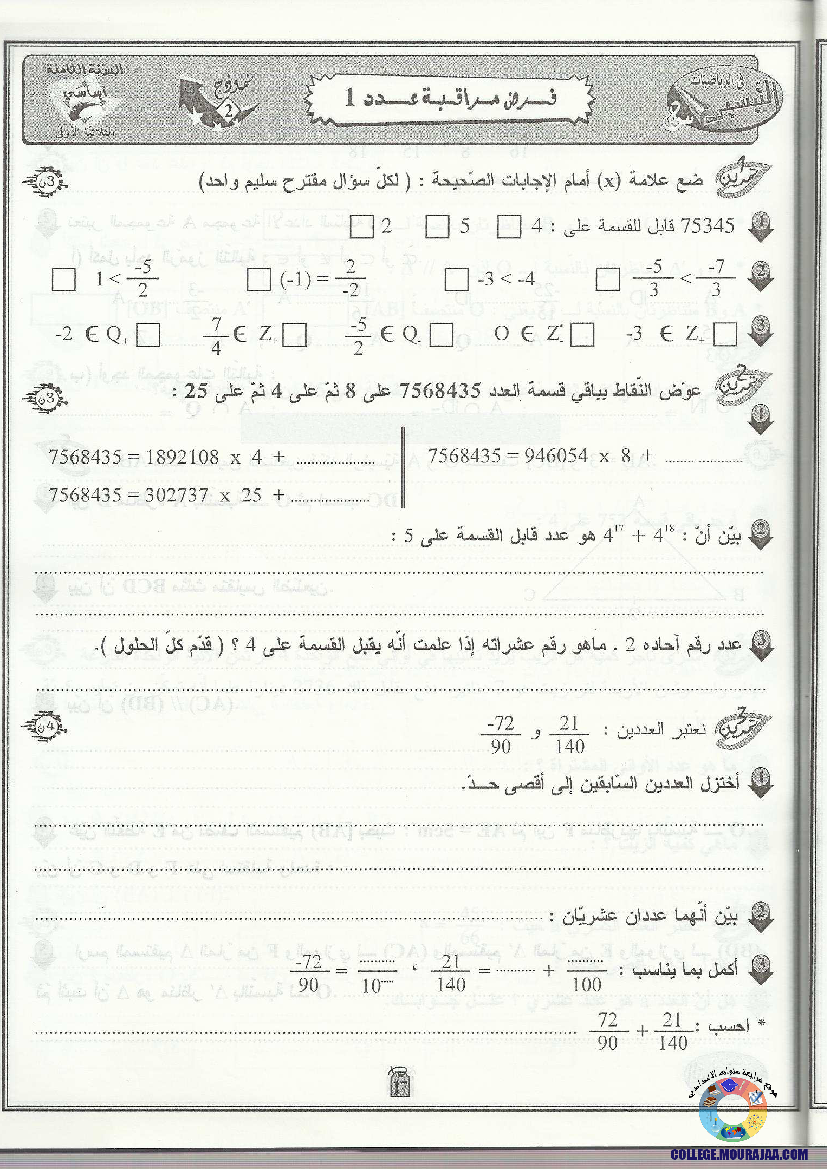 السنة الثامنة
أساسي
الثلاثي الأول
نموذج
2
فرض مراقبة عدد 1
في الرياضيات
تمرين 1
ضع علامة (x) أمام الإجابات الصّحيحة : ( لكلّ سؤال مقترح سليم واحد)
1 75345 قابل للقسمة على : 4 □ 5 □ 2 □
2 □ -5/3 < -7/3 □ -3 < -4 □ (-1) = 2/-2 □ 1 < -5/2
3 -2 ∈ Q+ □ 7/4 ∈ Z □ -5/2 ∈ Q- □ O ∈ Z* □ -3 ∈ Z+ □
تمرين 2
1 عوّض النّقاط بباقي قسمة العدد 7568435 على 8 ثمّ على 4 ثمّ على 25 :
7568435 = 946054 x 8 + ....................
7568435 = 1892108 x 4 + ....................
7568435 = 302737 x 25 + ....................
2 بيّن أنّ : 4^18 + 4^17 هو عدد قابل القسمة على 5 :
3 عدد رقم آحاده 2 . ماهو رقم عشراته إذا علمت أنّه يقبل القسمة على 4 ؟ ( قدّم كلّ الحلول ).
تمرين 3
نعتبر العددين : 21/140 و -72/90
1 أختزل العددين السّابقين إلى أقصى حــدّ.
2 بيّن أنّهما عددان عشريّان :
3 أكمل بما يناسب : 21/140 = .......... + ........../100 ، -72/90 = ........../10^....
* احسب : 72/90 + 21/140
موقع مراجعة
COLLEGE.MOURAJAA.COM